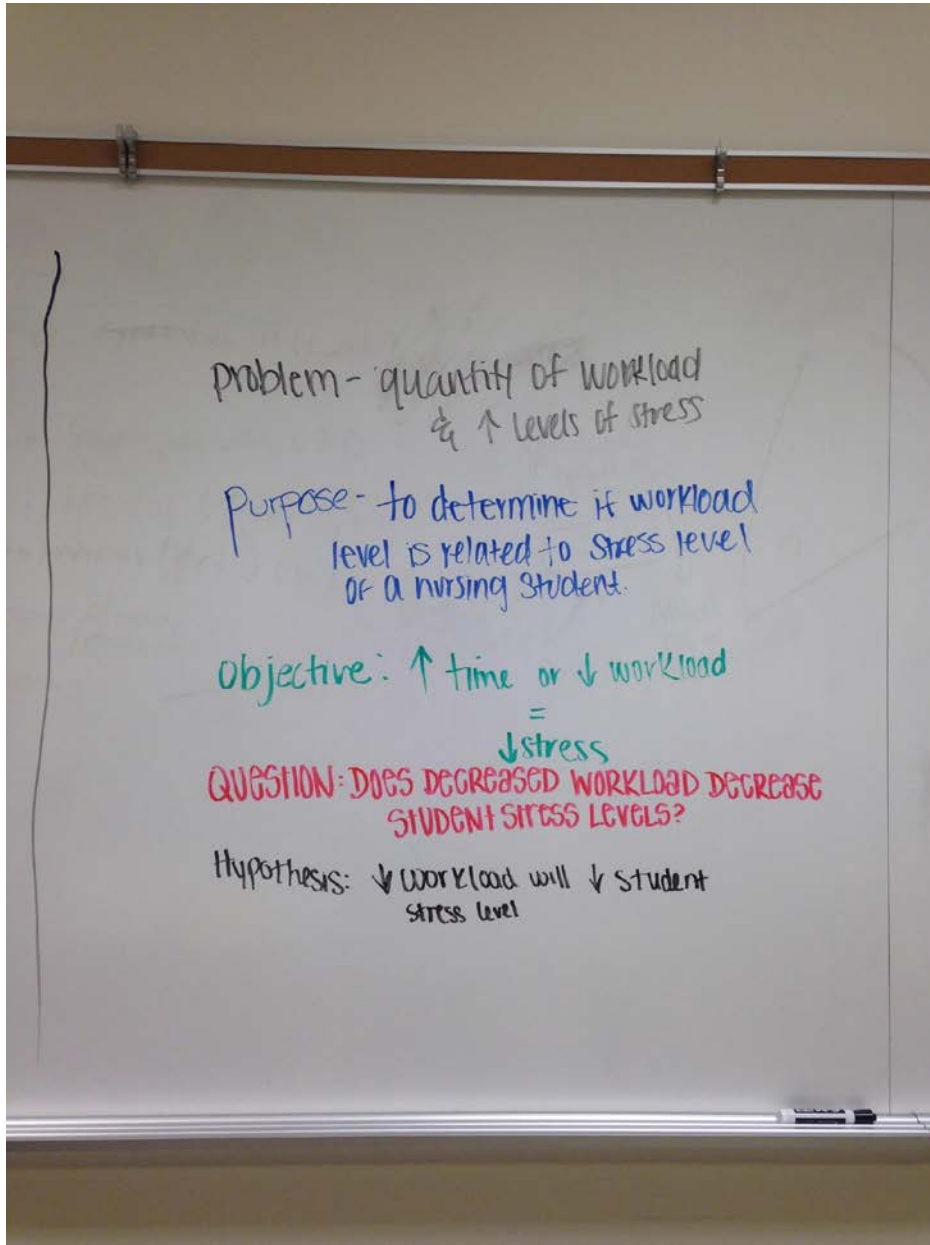 Problem - quantity of workload
& ↑ levels of stress
Purpose - to determine if workload
level is related to stress level
of a nursing student.
Objective: ↑ time or ↓ workload
=
↓ stress
QUESTION: DOES DECREASED WORKLOAD DECREASE
STUDENT STRESS LEVELS?
Hypothesis: ↓ workload will ↓ student
stress level